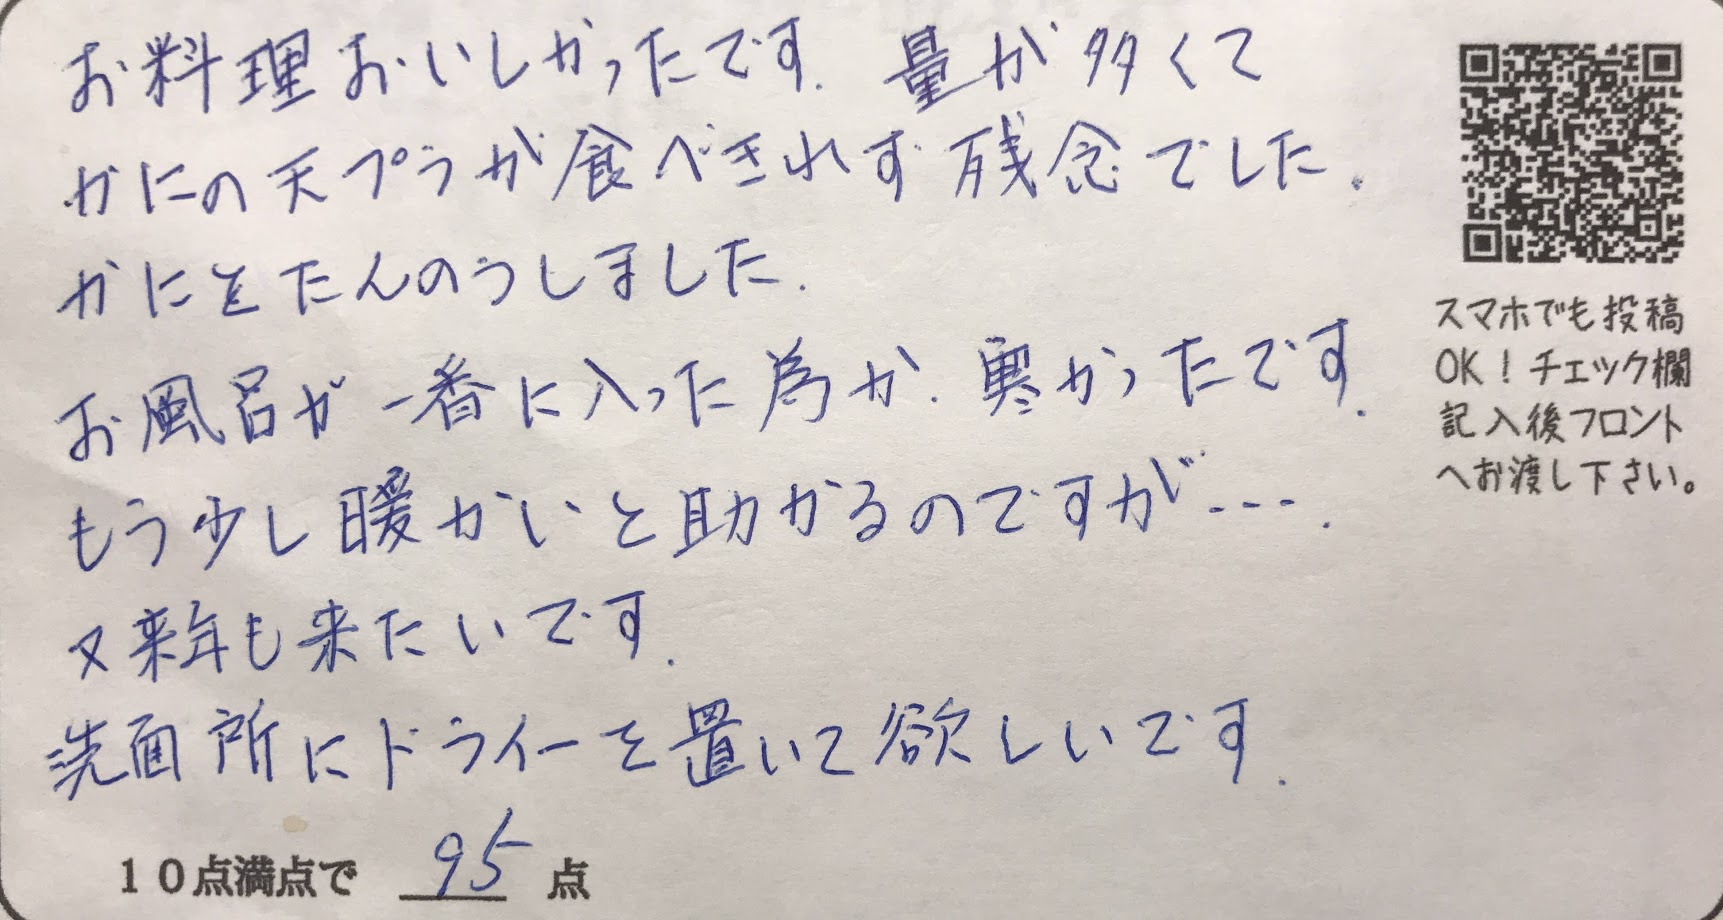 お料理おいしかったです。量が多くて
かにの天プラが食べきれず残念でした。
かにをたんのうしました。
お風呂が一番に入った為か、寒かったです。
もう少し暖かいと助かるのですが----.
又来年も来たいです。
洗面所にドライーを置いて欲しいです。
10点満点で 95 点
スマホでも投稿
OK！チェック欄
記入後フロント
へお渡し下さい。